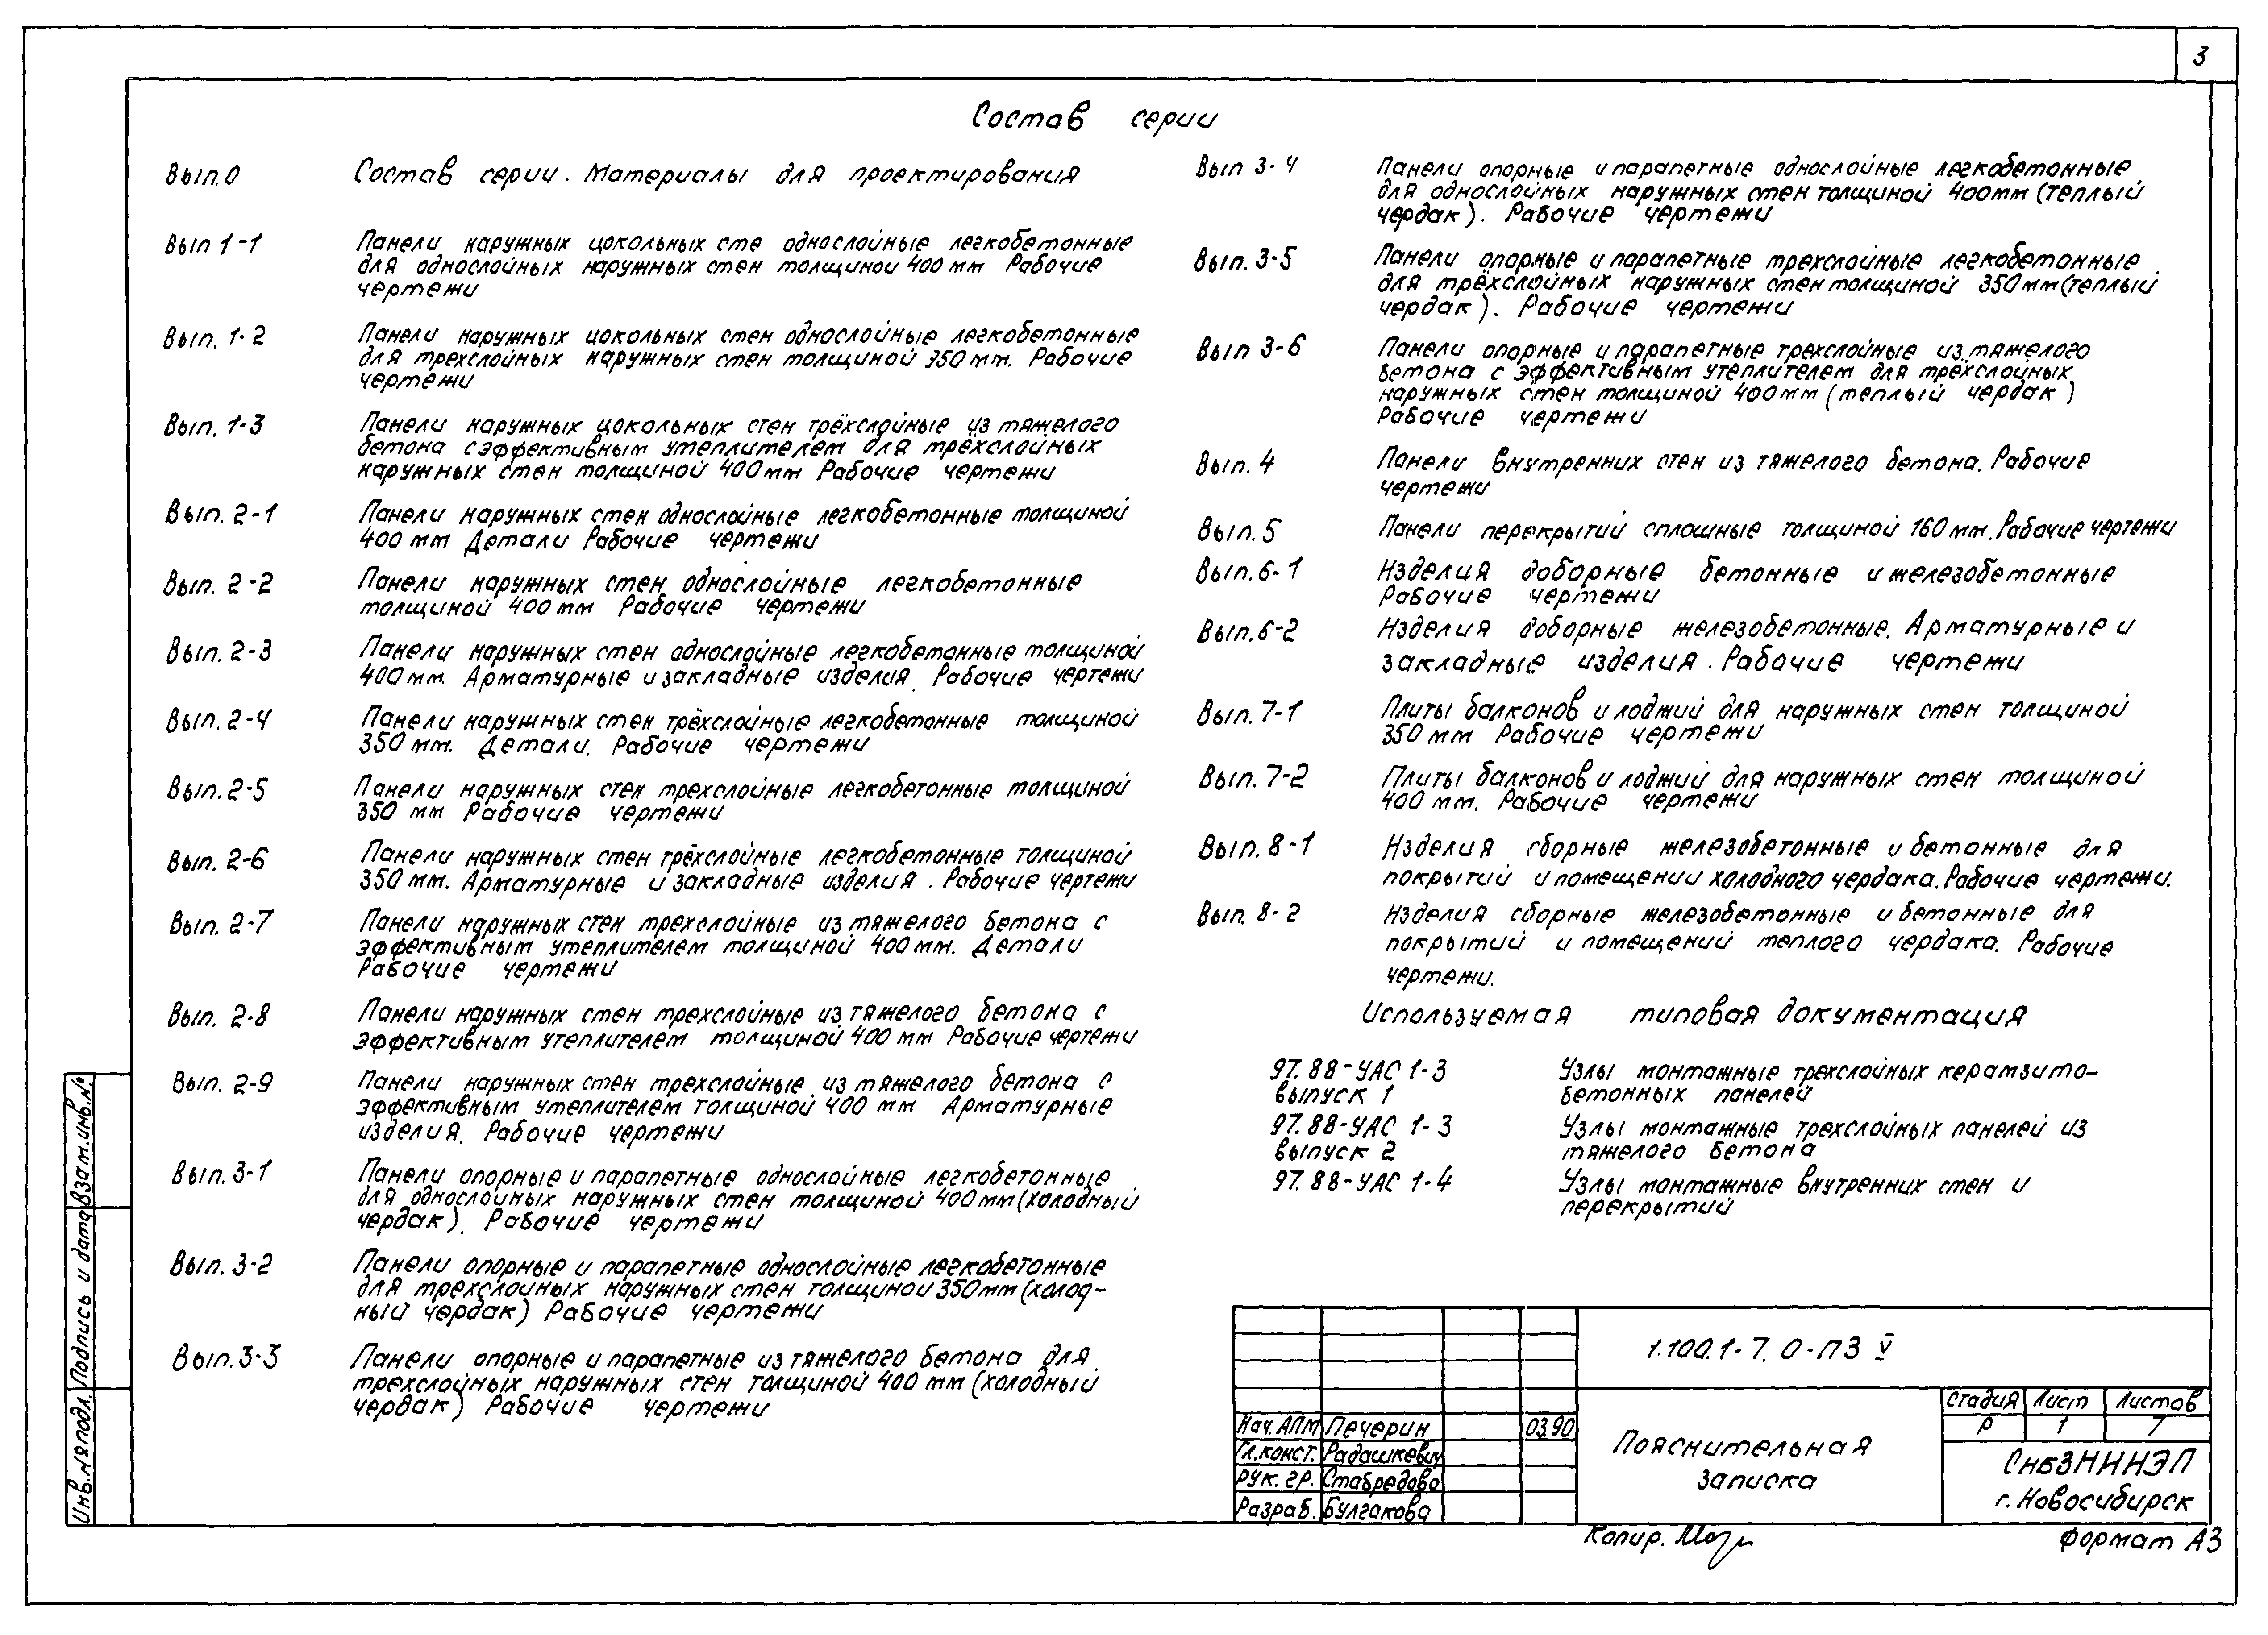 3
Состав серии
Вып. 0 Состав серии. Материалы для проектирования
Вып 1-1 Панели наружных цокольных сте однослойные легкобетонные
для однослойных наружных стен толщиной 400 мм Рабочие
чертежи
Вып. 1-2 Панели наружных цокольных стен однослойные легкобетонные
для трехслойных наружных стен толщиной 350 мм. Рабочие
чертежи
Вып. 1-3 Панели наружных цокольных стен трёхслойные из тяжелого
бетона с эффективным утеплителем для трёхслойных
наружных стен толщиной 400 мм Рабочие чертежи
Вып. 2-1 Панели наружных стен однослойные легкобетонные толщиной
400 мм Детали Рабочие чертежи
Вып. 2-2 Панели наружных стен однослойные легкобетонные
толщиной 400 мм Рабочие чертежи
Вып. 2-3 Панели наружных стен однослойные легкобетонные толщиной
400 мм. Арматурные и закладные изделия. Рабочие чертежи
Вып. 2-4 Панели наружных стен трёхслойные легкобетонные толщиной
350 мм. Детали. Рабочие чертежи
Вып. 2-5 Панели наружных стен трехслойные легкобетонные толщиной
350 мм Рабочие чертежи
Вып. 2-6 Панели наружных стен трёхслойные легкобетонные толщиной
350 мм. Арматурные и закладные изделия. Рабочие чертежи
Вып. 2-7 Панели наружных стен трехслойные из тяжелого бетона с
эффективным утеплителем толщиной 400 мм. Детали
Рабочие чертежи
Вып. 2-8 Панели наружных стен трехслойные из тяжелого бетона с
эффективным утеплителем толщиной 400 мм Рабочие чертежи
Вып. 2-9 Панели наружных стен трехслойные из тяжелого бетона с
эффективным утеплителем толщиной 400 мм Арматурные
изделия. Рабочие чертежи
Вып. 3-1 Панели опорные и парапетные однослойные легкобетонные
для однослойных наружных стен толщиной 400 мм (холодный
чердак). Рабочие чертежи
Вып. 3-2 Панели опорные и парапетные однослойные легкобетонные
для трехслойных наружных стен толщиной 350 мм (холод-
ный чердак) Рабочие чертежи
Вып. 3-3 Панели опорные и парапетные из тяжелого бетона для
трехслойных наружных стен толщиной 400 мм (холодный
чердак) Рабочие чертежи
Вып 3-4 Панели опорные и парапетные однослойные легкобетонные
для однослойных наружных стен толщиной 400 мм (теплый
чердак). Рабочие чертежи
Вып. 3-5 Панели опорные и парапетные трехслойные легкобетонные
для трёхслойных наружных стен толщиной 350 мм (теплый
чердак). Рабочие чертежи
Вып 3-6 Панели опорные и парапетные трехслойные из тяжелого
бетона с эффективным утеплителем для трёхслойных
наружных стен толщиной 400 мм (теплый чердак)
Рабочие чертежи
Вып. 4 Панели внутренних стен из тяжелого бетона. Рабочие
чертежи
Вып. 5 Панели перекрытий сплошные толщиной 160 мм. Рабочие чертежи
Вып. 6-1 Изделия доборные бетонные и железобетонные
Рабочие чертежи
Вып. 6-2 Изделия доборные железобетонные. Арматурные и
закладные изделия. Рабочие чертежи
Вып. 7-1 Плиты балконов и лоджий для наружных стен толщиной
350 мм Рабочие чертежи
Вып. 7-2 Плиты балконов и лоджий для наружных стен толщиной
400 мм. Рабочие чертежи
Вып. 8-1 Изделия сборные железобетонные и бетонные для
покрытий и помещении холодного чердака. Рабочие чертежи.
Вып. 8-2 Изделия сборные железобетонные и бетонные для
покрытий и помещений теплого чердака. Рабочие
чертежи.
Используемая типовая документация
97.88-УАС 1-3 Узлы монтажные трехслойных керамзито-
выпуск 1 бетонных панелей
97.88-УАС 1-3 Узлы монтажные трехслойных панелей из
выпуск 2 тяжелого бетона
97.88-УАС 1-4 Узлы монтажные внутренних стен и
перекрытий
Взам.инв.№
Подпись и дата
Инв.№ подл.
1.100.1-7. 0-ПЗ V
Нач.АПМ Печерин 03.90
Гл.конст. Радашкевич
Рук.гр. Стабредова
Разраб. Булгакова
Пояснительная
записка
Стадия Лист Листов
Р 1 7
СибЗНИИЭП
г. Новосибирск
Копир.
Формат А3